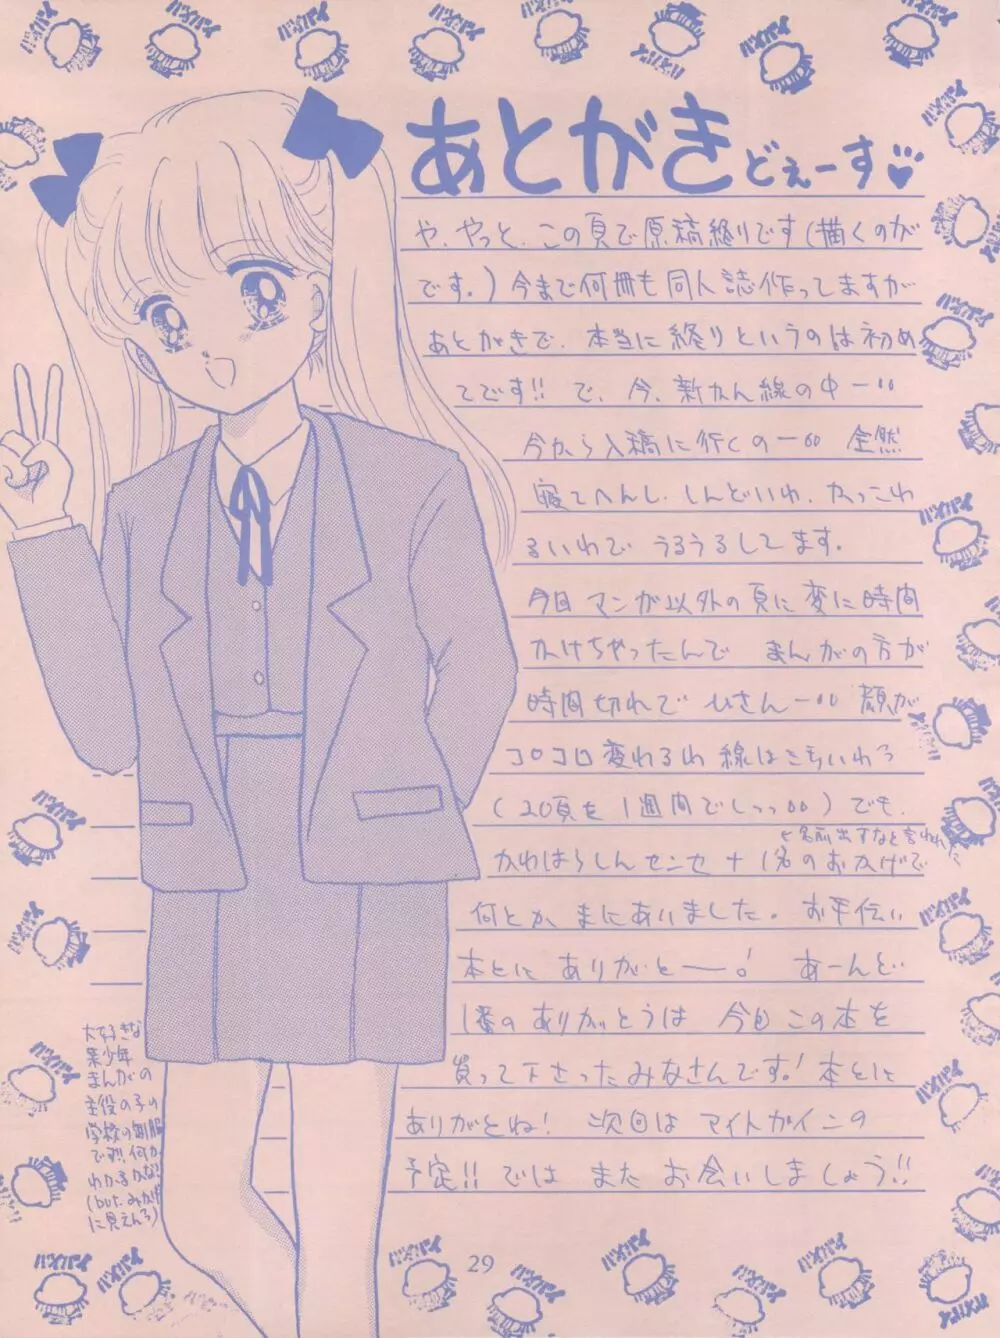 あとがきどぇーす♡
や、やっと、この頁で原稿終りです(描くのが
です。)今まで何冊も同人誌作ってますが
あとがきで、本当に終りというのは初め
てです!! で、今、新かん線の中ー。。
今から入稿に行くのー。。 全然
寝てへんし、しんどいわ、かっこわ
るいわで うるうるしてます。
今日マンガ以外の頁に変に時間
かけちゃったんで まんがの方が
時間切れで ひさんー。。 顔が
コロコロ変わるわ 線はきちゃいわ
(20頁を1週間でしっ。。)でも、
↙名前出すなと言われた
かわはらしんセンセ+1名のおかげで
何とか まにあいました。 お手伝い
本とに ありがとーー! あーんど
1番のありがとうは 今日この本を
買って下さったみなさんです! 本とに
ありがとね! 次回は マイトガインの
予定!! では また お会いしましょう!!
大好きな
某少年
まんがの
主役の子の
学校の制服
です!!何か
わかるかな?
(but.みかけ
に見えんろ)
29
バイバイ